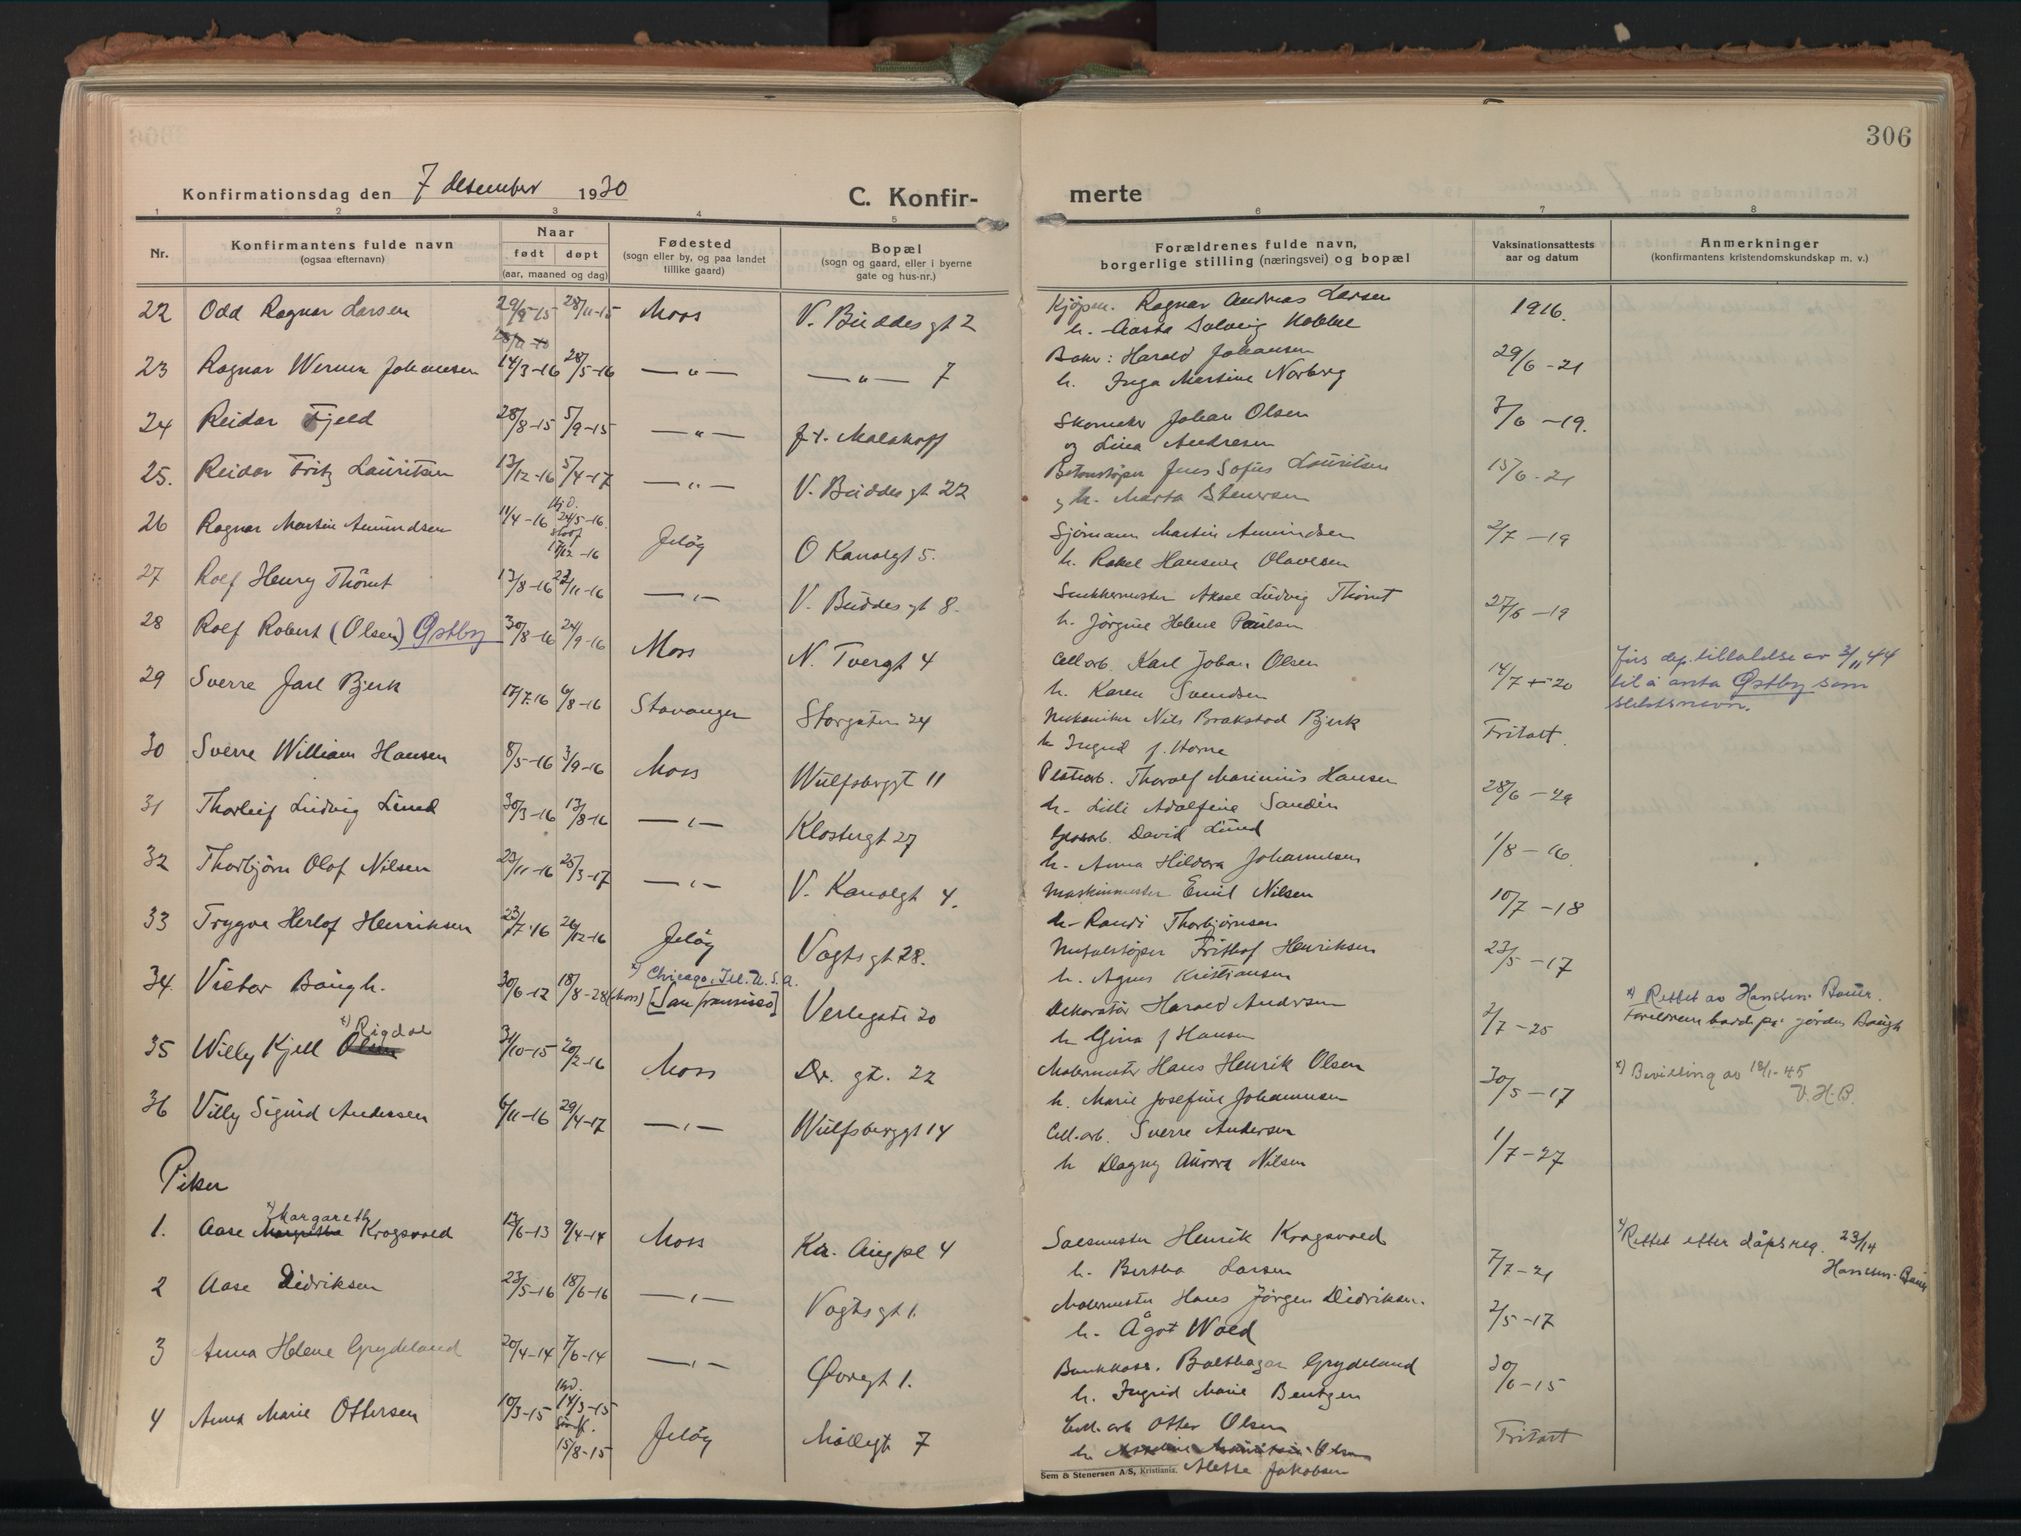 306
Konfirmationsdag den 7 desember 1930
C. Konfir-
merte
1 2 3 4 5 6 7 8
Nr.
Konfirmantens fulde navn
(ogsaa efternavn)
Naar
født døpt
(aar, maaned og dag)
Fødested
(sogn eller by, og paa landet
tillike gaard)
Bopæl
(sogn og gaard, eller i byerne
gate og hus-nr.)
Forældrenes fulde navn,
borgerlige stilling (næringsvei) og bopæl
Vaksinationsattests
aar og datum
Anmerkninger
(konfirmantens kristendomskundskap m. v.)
22 Odd Ragnar Larsen 28/11-15 Moss V. Buddesgt 2 Kjøpm. Ragnar Andreas Larsen 1916.
h. Aasta Solveig
23 Ragnar Werner Johansen 14/3-16 28/5-16 —„— —„— 7 Harald Johansen 29/6-21
h. Inga Martine Norberg
24 Reidar Fjeld 28/8-15 5/9-15 —„— Malakoff Skomak. Johan Olsen 3/6-19.
og Lina Andresen
25. Reidar Fritz Lauritsen 13/12-16 5/4-17 —„— V. Buddesgt 22 Betonstøper Jens Sofus Lauritsen 15/6-21
h. Marta Stenersen
26 Ragnar Martin Amundsen 11/4-16 Hj.d. 24/5-16. 17/12-16 Jeløy O Kanalgt 5. Sjømann Martin Amundsen 2/7-19
h. Rakel Hansine Olavesen
27 Rolf Henry Thömt 13/8-16 —„— V. Buddesgt 8. Snekkermester Aksel Ludvig Thömt 27/6-19
h. Jørgine Helene Paulsen
28 Rolf Robert (Olsen) Østby 30/8-16 24/9-16 Moss N. Torvgt 4 Cell.arb. Karl Johan Olsen 14/7-20 Jus. dep. tillatelse av 3/11 44
h. Karen Svendsen til å anta Østby som
slektsnavn.
29 Sverre Jarl Bjerk 17/7-16 6/8-16 Stavanger Storgaten 24 Mekaniker Nils Brakstad Bjerk Fritatt.
h Ingrid f. Horne
30 Sverre William Hansen 8/5-16 3/9-16 Moss Wulfsbergt 11 Thoralf Marinius Hansen
h. Lilli Adolfine Sandèn
31 Thorleif Ludvig Lund 30/3-16 13/8-16 —„— Klostergt 27 Glasarb. David Lund 1/8-16.
h. Anna Hildora Johannesen
32 Thorbjørn Olof Nilsen 23/11-16 25/3-17 —„— V. Kanalgt 4. Maskinmester Emil Nilsen 10/7-18
h. Randi Thorbjørnsen
33 Trygve Herlof Henriksen 23/7-16 26/12-16 Jeløy Vogtsgt 28. Metalstøper Frithof Henriksen 23/5-17
h. Agnes Kristiansen
34. Victor Baugh. 30/6-12 18/8-28 (Moss) x) Chicago, Ill. U.S.A.
[San fransisco] Verlegate 20 Dekoratør Harald Andersen 2/7-25 x) Rettet av Hansten-Bauer.
h Gina f Hansen Foreldrene
35 Willy Kjell Olsen x) Rigdal 31/10-15 20/2-16 Moss Dr. gt. 22 Malermester Hans Henrik Olsen 30/5-17 x) Bevilling av 18/1-45
h. Marie Josefine Johannesen V.H.B.
36 Villy Sigurd Andersen 6/11-16 29/4-17 —„— Wulfsberggt 14 Cell.arb. Sverre Andersen 1/7-27
h Dagny Aurora Nilsen
Piker
1. Aase Margrethe x) Margareth Krogsvold 12/6-13 9/4-14 Moss Kr. Augpl 4 Henrik Krogsvold 7/7-21 x) Rettet etter dåpsreg. 23/14
h. Bertha Larsen Hansten-Bauer
2 Aase Didriksen 23/5-16 18/6-16 —„— Vogtsgt 1. Malermester Hans Jörgen Didriksen. 2/5-17
h. Ågot Wold
3 Anna Helene Grydeland 20/4-14 7/6-14 —„— Øvregt 1. Bankkass. Balthazar Grydeland 30/6-15
h. Ingrid Marie Bentzen
4 Anna Marie Ottersen 10/3-15 Hjd. 14/3-15 15/8-15 Jeløy Møllegt 7 Cell. arb Otter Olsen Fritatt
h.
Alette Jakobsen
Sem & Stenersen A/S, Kristiania.